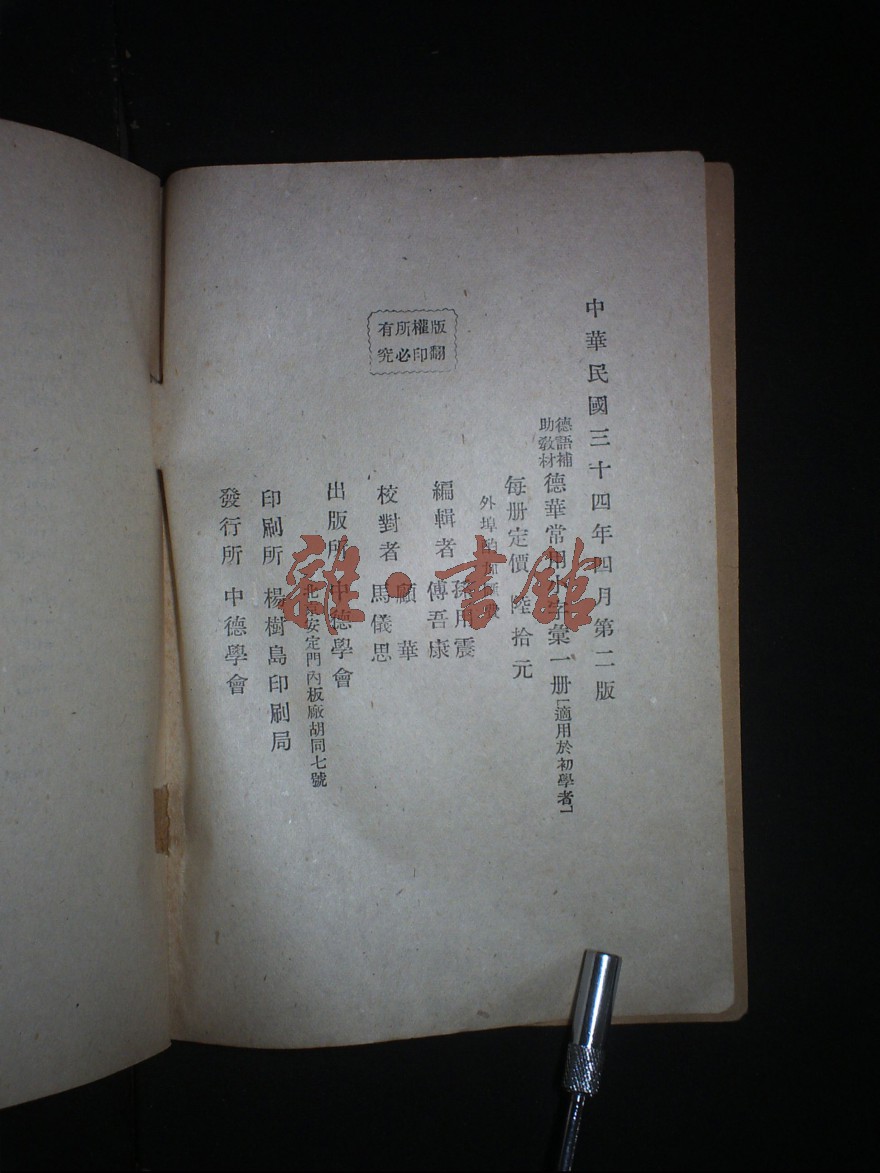 中華民國三十四年四月第二版
德語補
助敎材
德華常用小字彙一册[適用於初學者]
每册定價 陸拾元
外埠
編輯者 孫用震
傅吾康
校對者 顧華
馬儀思
出版所 中德學會
北京安定門內板廠胡同七號
印刷所 楊樹島印刷局
發行所 中德學會
有所權版
究必印翻
雜·書館